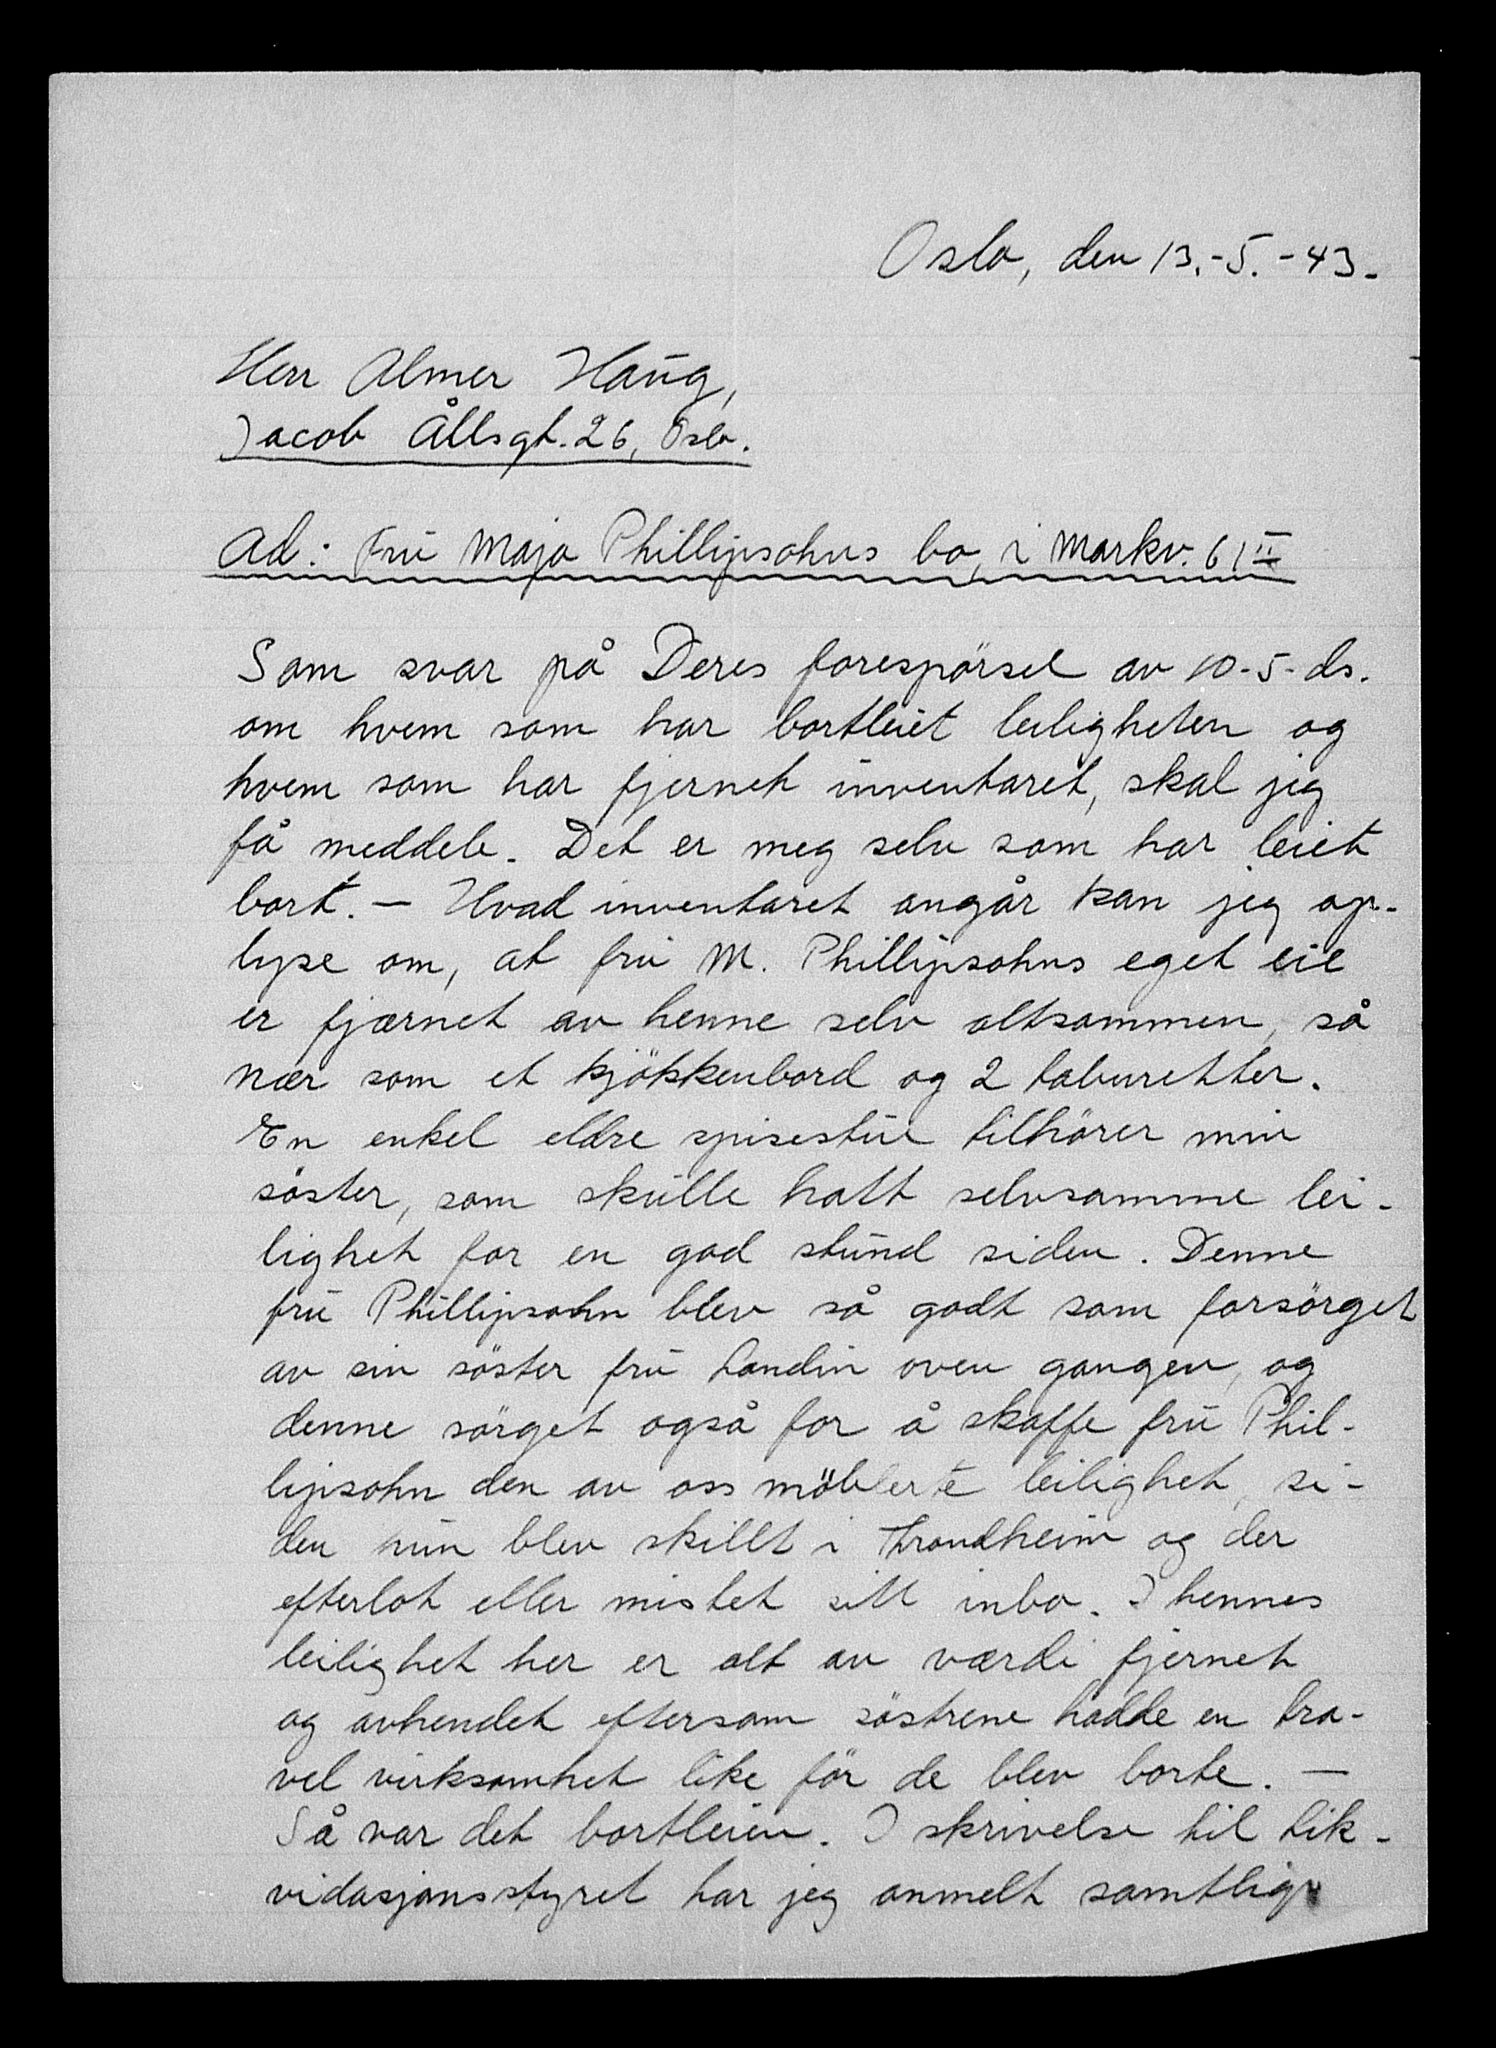 Oslo, den 13.-5.-43.
Herr Almer Haug,
Jacob Ållsgt. 26, Oslo.
Ad: Fru Maja Phillipsohns bo, i Markv. 61 II
Som svar på Deres forespørsel av 10-5-ds.
om hvem som har bortleiet leiligheten og
hvem som har fjernet inventaret, skal jeg
få meddele. Det er meg selv som har leiet
bort. – Hvad inventaret angår kan jeg op-
lyse om, at fru M. Phillipsohns eget eie
er fjærnet av henne selv altsammen, så
nær som et kjökkenbord og 2 taburetter.
En enkel eldre spisestue tilhörer min
söster, som skulle hatt selvsamme lei-
lighet for en god stund siden. Denne
fru Phillipsohn blev så godt som forsörget
av sin söster fru Landin oven gangen, og
denne sörget også for å skaffe fru Phil-
lipsohn den av oss möblerte leilighet, si-
den hun blev skillt i Trondheim og der
efterlot eller mistet sitt inbo. I hennes
leilighet her er alt av værdi fjernet
og avhendet eftersom söstrene hadde en tra-
vel virksomhet like för de blev borte. –
Så var det bortleien. I skrivelse til Lik-
vidasjonsstyret har jeg anmelt samtlige